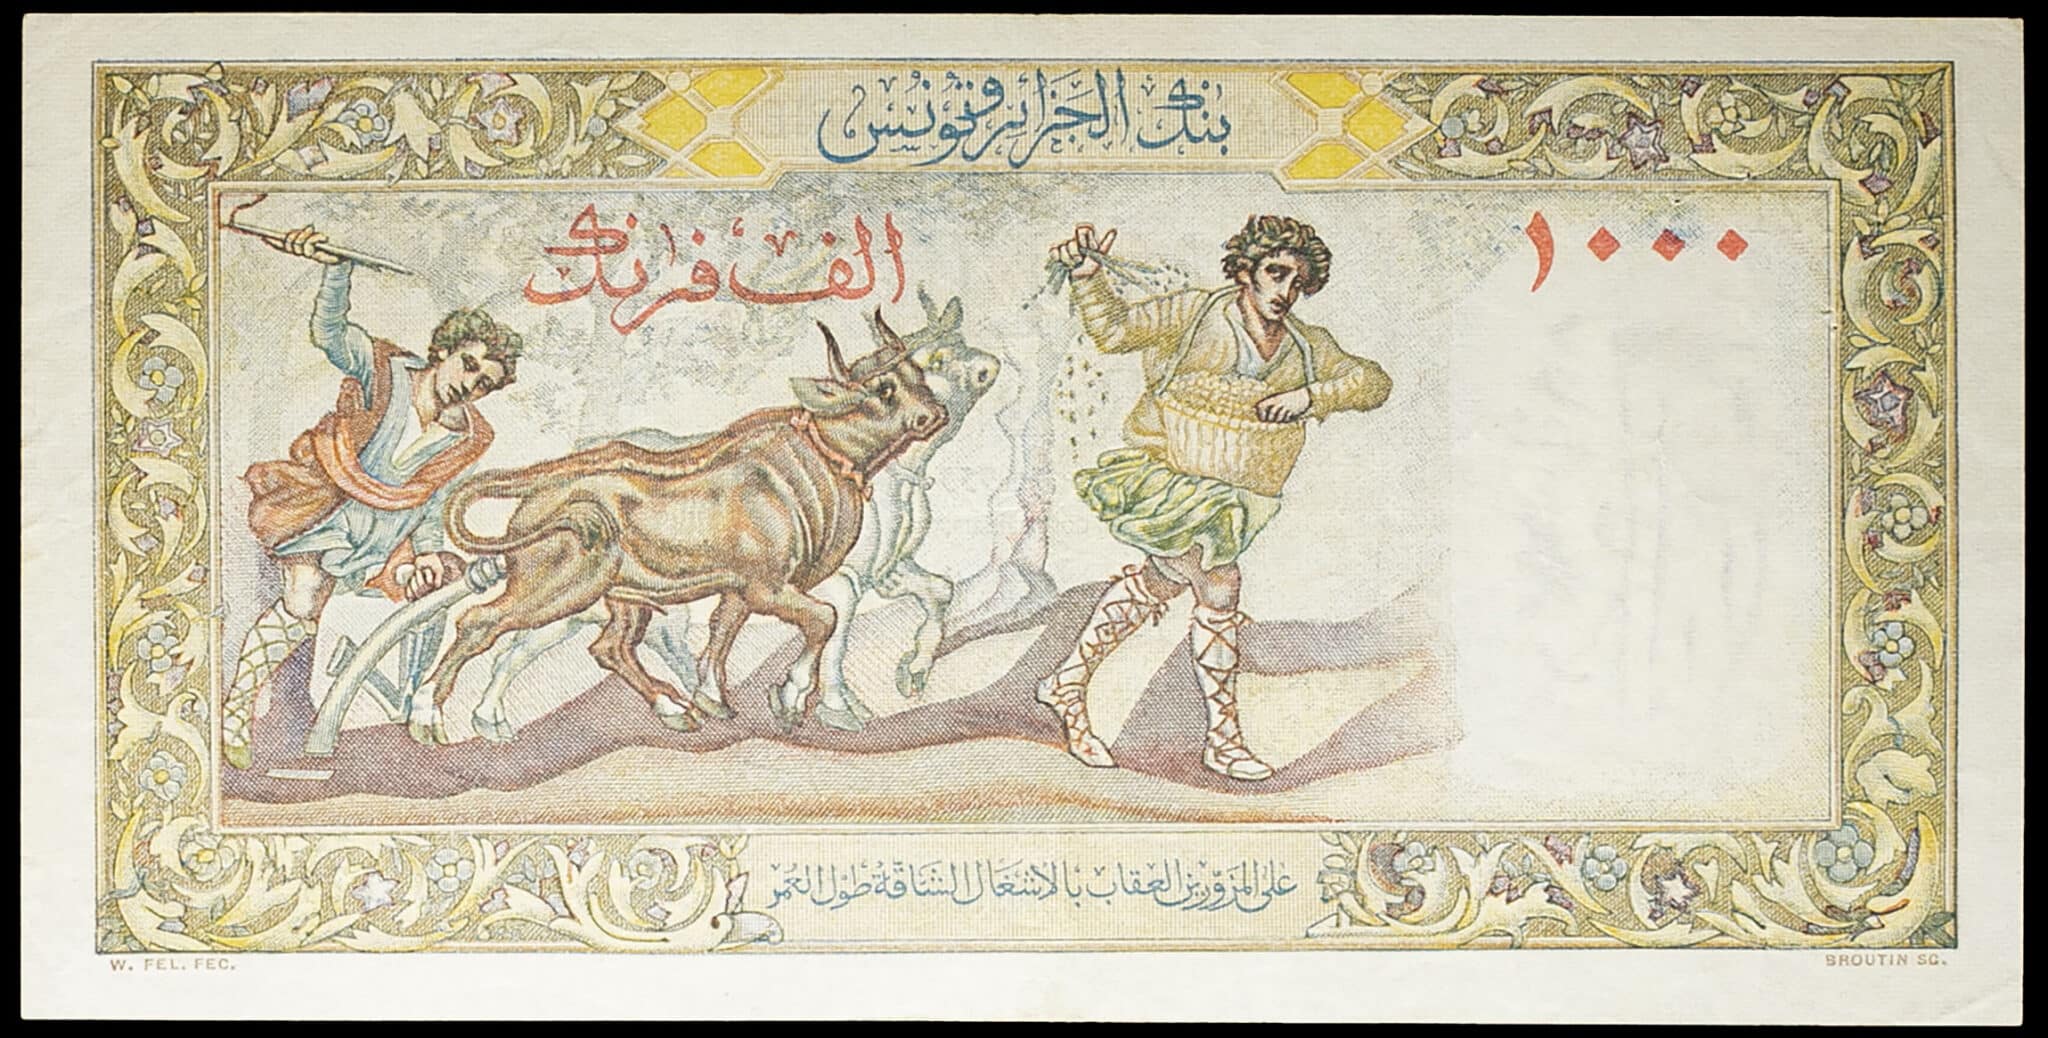 بنك الجزائر وتونس
الف فرنك
١٠٠٠
على المزورين العقاب بالاشغال الشاقة طول العمر
W. FEL. FEC.
BROUTIN SC.